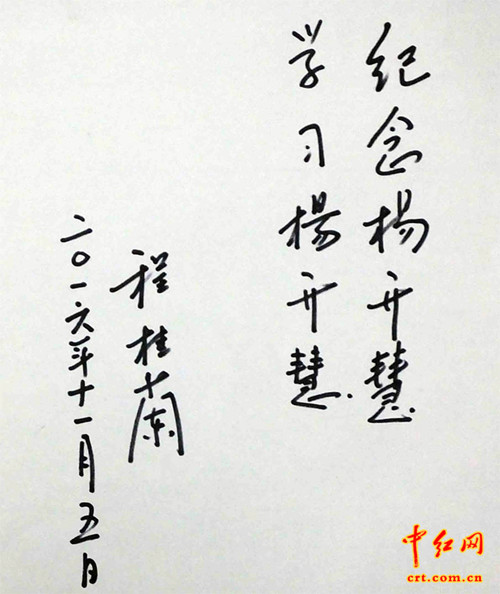 纪念楊开慧
学习楊开慧
程桂蘭
二〇一六年十一月五日
中红网
crt.com.cn